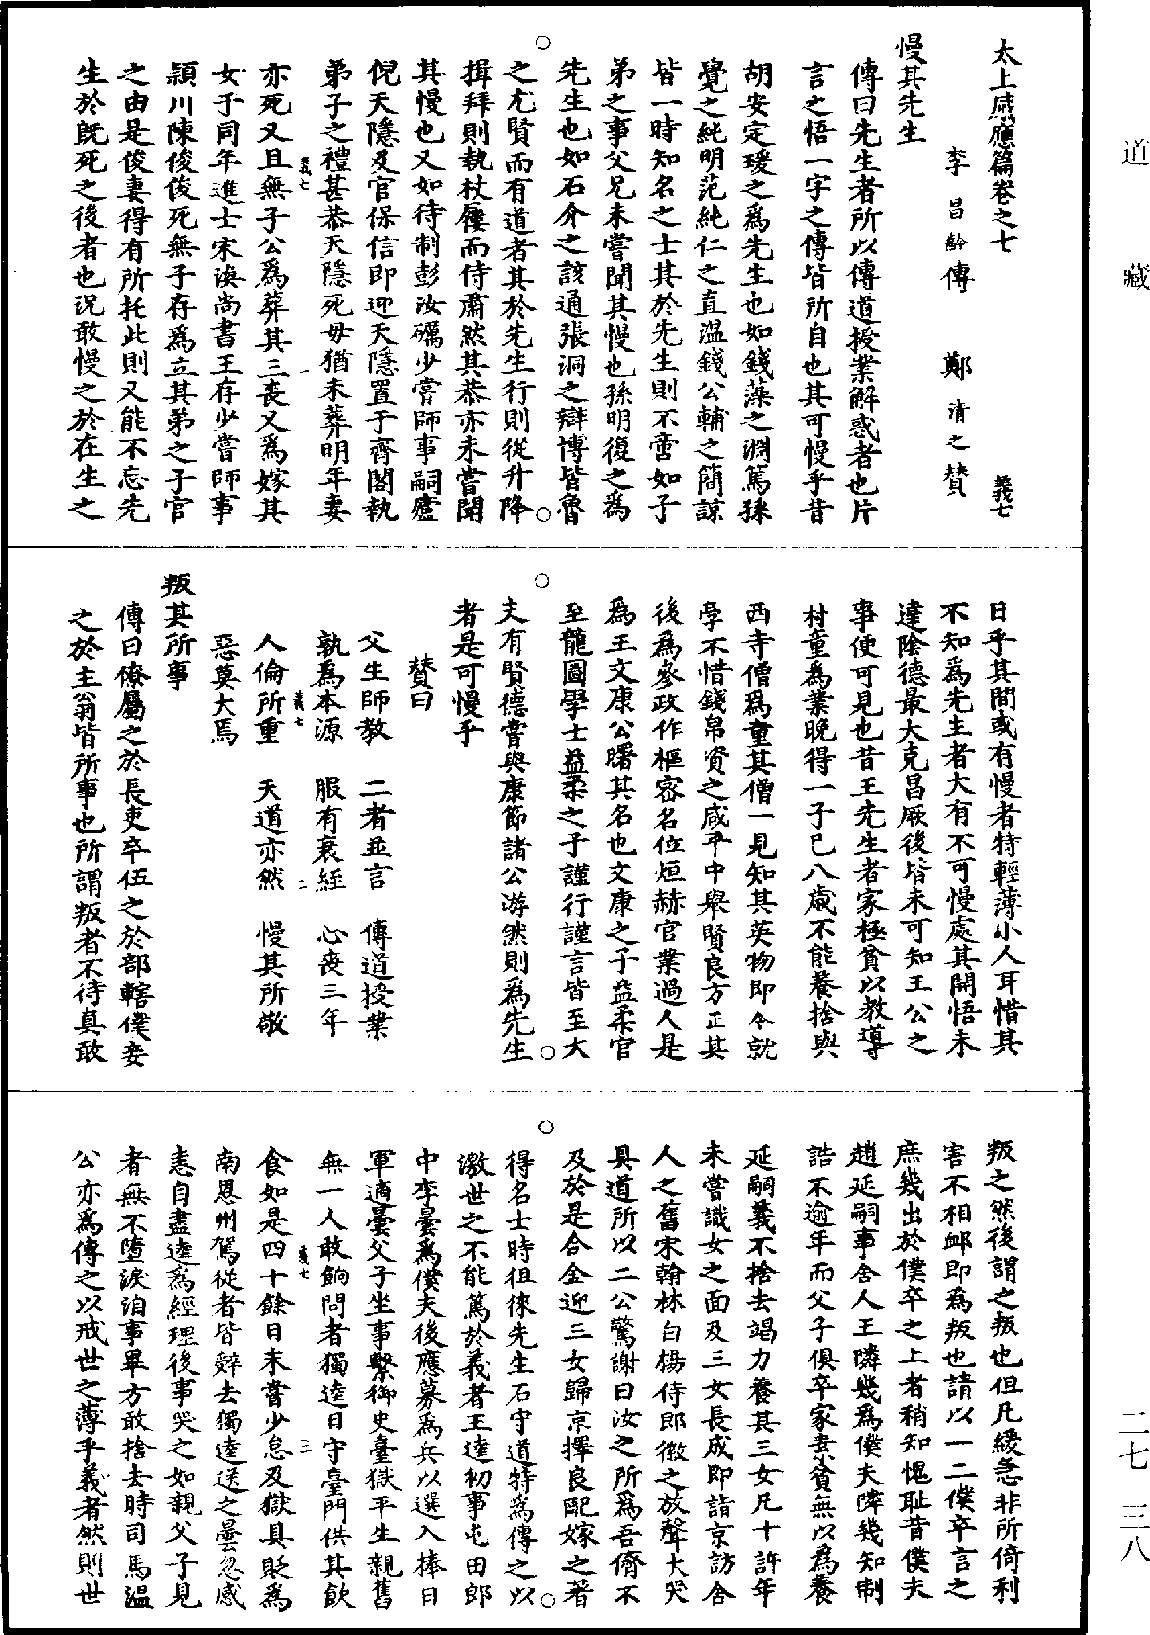 道藏
二七　三八
太上感應篇卷之七　義七
李昌齡傳　鄭清之贊
慢其先生
傳曰先生者所以傳道授業解惑者也片
言之悟一字之傳皆所自也其可慢乎昔
胡安定瑗之為先生也如錢藻之淵篤孫
覺之純明范純仁之直溫錢公輔之簡諒
皆一時知名之士其於先生則不啻如子
弟之事父兄未嘗聞其慢也孫明復之為
先生也如石介之該通張洞之辯博皆魯
之尤賢而有道者其於先生行則從升降
揖拜則執杖屨而侍肅然其恭亦未嘗聞
其慢也又如待制彭汝礪少嘗師事嗣廬
倪天隱及官保信即迎天隱置于齊閣執
弟子之禮甚恭天隱死毋猶未葬明年妻
義七　一
亦死又且無子公為葬其三喪又為嫁其
女于同年進士宋渙尚書王存少嘗師事
頴川陳俊俊死無子存為立其弟之子官
之由是俊妻得有所托此則又能不忘先
生於既死之後者也況敢慢之於在生之
日乎其間或有慢者特輕薄小人耳惜其
不知為先生者大有不可慢處其開悟未
達陰德最大克昌厥後皆未可知王公之
事便可見也昔王先生者家極貧以教導
村童為業晚得一子已八歲不能養捨與
西寺僧為童其僧一見知其英物即令就
學不惜錢帛資之咸平中舉賢良方正其
後為參政作樞密名位烜赫官業過人是
為王文康公曙其名也文康之子益柔官
至龍圖學士益柔之子謹行謹言皆至大
夫有賢德嘗與康節諸公游然則為先生
者是可慢乎
贊曰
父生師教　二者並言　傳道授業
孰為本源　服有衰絰　心喪三年
義七　二
人倫所重　天道亦然　慢其所敬
惡莫大焉
叛其所事
傳曰僚屬之於長吏卒伍之於部轄僕妾
之於主翁皆所事也所謂叛者不待真敢
叛之然後謂之叛也但凡緩急非所倚利
害不相卹即為叛也請以一二僕卒言之
庶幾出於僕卒之上者稍知愧耻昔僕夫
趙延嗣事舍人王隣幾為僕夫隣幾知制
誥不逾年而父子俱卒家妻貧無以為養
延嗣義不捨去竭力養其三女凡十許年
未嘗識女之面及三女長成即詣京訪舍
人之舊宋翰林白楊侍郎徽之放聲大哭
具道所以二公驚謝曰汝之所為吾儕不
及於是合金迎三女歸京擇良配嫁之著
得名士時徂徠先生石守道特為傳之以
激世之不能篤於義者王達初事屯田郎
中李曇為僕夫後應募為兵以選入捧日
軍適曇父子坐事繫御史臺獄平生親舊
無一人敢餉問者獨達日守臺門供其飲
義七　三
食如是四十餘日未嘗少怠及獄具貶為
南恩州駕從者皆辭去獨達送之曇忽感
恚自盡達為經理後事哭之如親父子見
者無不墮淚洎事畢方敢捨去時司馬溫
公亦為傳之以戒世之薄乎義者然則世